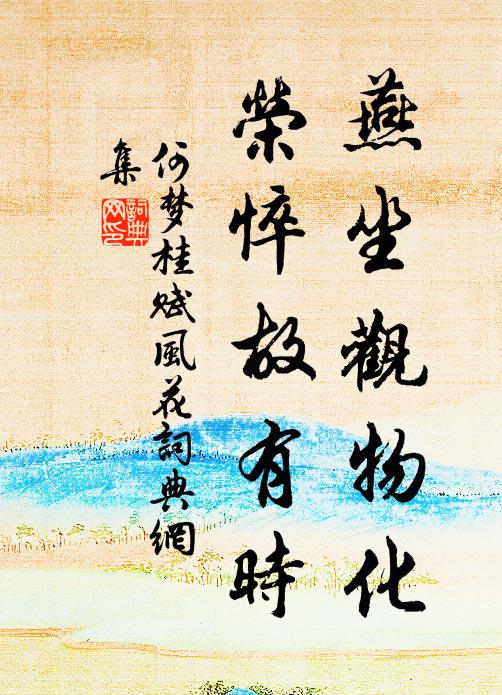 燕坐觀物化
榮悴故有時
何梦桂赋風花詞典網
集
詞典網印